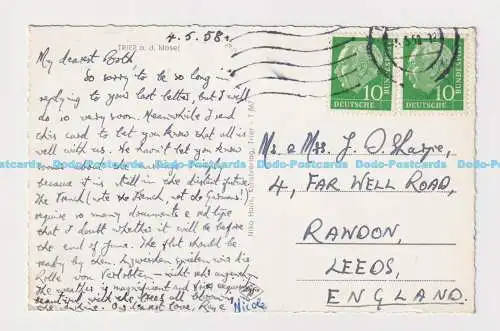 4.5.58.
TRIER a. d. Mosel
My dearest Both
So sorry to be so long in
replying to your last letter, but I will
do so very soon. Meanwhile I send
this card to let you know that all is
well with us. We haven't let you know
more about the marriage
because it is still in the distant future.
The French (note the French, not the Germans!)
require so many documents & red tape
that I doubt whether it will be before
the end of June. The flat should be
ready by then. Inzwischen spielen wir die
Rolle von Verlobten – nicht sehr
The weather is magnificent and Trier
beautiful with the trees all blooming
Our best love, Ray & Nicole
10 10
DEUTSCHE BUNDESPOST
DEUTSCHE BUNDESPOST
Mr. & Mrs. J. D. Sharpe,
4, FAR WELL ROAD,
RAWDON,
LEEDS,
ENGLAND.
Dodo-Postcards Dodo-Postcards Dodo-Postcards Dodo-Postcards Dodo-Postcards
Dodo-Postcards Dodo-Postcards Dodo-Postcards Dodo-Postcards Dodo-Postcards